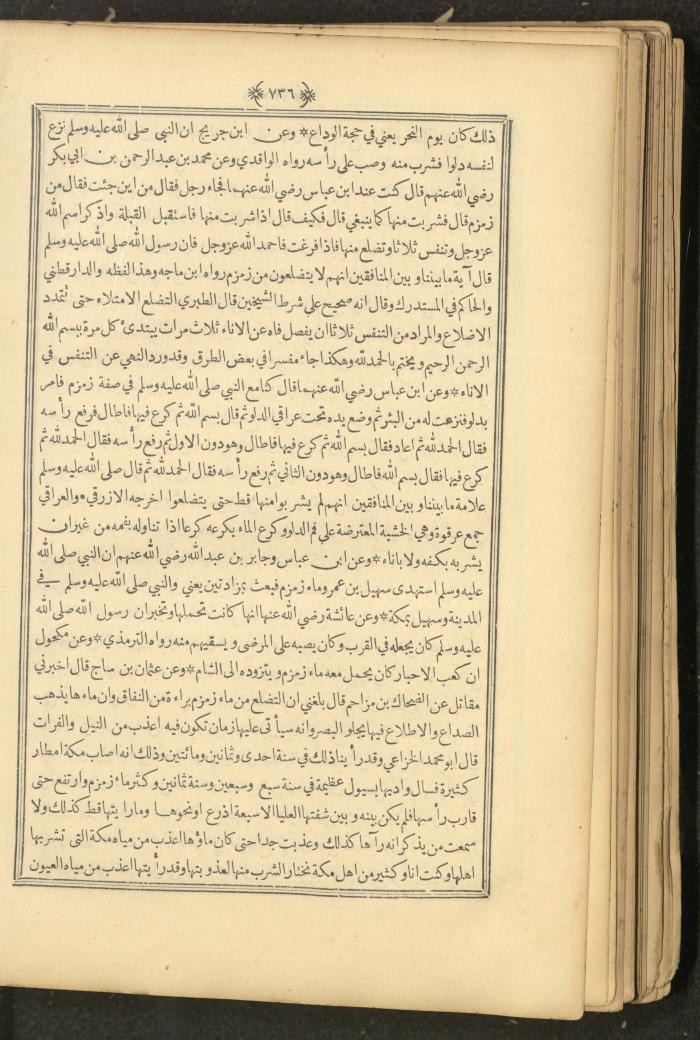 ﴿٧٣٦﴾
ذلك كان يوم النحر يعني في حجة الوداع * وعن ابن جريج ان النبي صلى الله عليه وسلم نزع
لنفسه دلوا فشرب منه وصب على رأسه رواه الواقدي وعن محمد بن عبد الرحمن بن ابي بكر
رضي الله عنهم قال كنت عند ابن عباس رضي الله عنهما فجاء رجل فقال من اين جئت فقال من
زمزم قال فشربت منها كما ينبغي قال فكيف قال اذا شربت منها فاستقبل القبلة واذكر اسم الله
عز وجل وتنفس ثلاثا وتضلع منها فاذا فرغت فاحمد الله عز وجل فان رسول الله صلى الله عليه وسلم
قال آية ما بيننا و بين المنافقين انهم لا يتضلعون من زمزم رواه ابن ماجه وهذا لفظه والدارقطني
والحاكم في المستدرك وقال انه صحيح على شرط الشيخين قال الطبري التضلع الامتلاء حتى تتمدد
الاضلاع والمراد من التنفس ثلاثا ان يفصل فاه عن الاناء ثلاث مرات يبتدئ كل مرة ببسم الله
الرحمن الرحيم و يختم بالحمد لله وهكذا جاء مفسرا في بعض الطرق وقد ورد النهي عن التنفس في
الاناء * وعن ابن عباس رضي الله عنهما قال كنا مع النبي صلى الله عليه وسلم في صفة زمزم فامر
بدلو فنزعت له من البئر ثم وضع يده تحت عراقي الدلو ثم قال بسم الله ثم كرع فيها فاطال فرفع رأسه
فقال الحمد لله ثم اعاد فقال بسم الله ثم كرع فيها فاطال وهو دون الاول ثم رفع رأسه فقال الحمد لله ثم
كرع فيها فقال بسم الله فاطال وهو دون الثاني ثم رفع رأسه فقال الحمد لله ثم قال صلى الله عليه وسلم
علامة ما بيننا و بين المنافقين انهم لم يشربوا منها قط حتى يتضلعوا اخرجه الازرقي * والعراقي
جمع عرقوة وهي الخشبة المعترضة على فم الدلو وكرع الماء يكرعه كرعا اذا تناوله بفمه من غير ان
يشربه بكفه ولا باناء * وعن ابن عباس وجابر بن عبد الله رضي الله عنهم ان النبي صلى الله
عليه وسلم استهدى سهيل بن عمرو ماء زمزم فبعث بمزادتين يعني والنبي صلى الله عليه وسلم في
المدينة وسهيل بمكة * وعن عائشة رضي الله عنها انها كانت تحملها وتخبر ان رسول الله صلى الله
عليه وسلم كان يجعله في القرب وكان يصبه على المرضى و يسقيهم منه رواه الترمذي * وعن مكحول
ان كعب الاحبار كان يحمل معه ماء زمزم و يتزوده الى الشام * وعن عثمان بن ساج قال اخبرني
مقاتل عن الضحاك بن مزاحم قال بلغني ان التضلع من ماء زمزم براءة من النفاق وان ماءها يذهب
الصداع والاطلاع فيها يجلو البصر وانه سيأتي عليها زمان تكون فيه اعذب من النيل والفرات
قال ابو محمد الخزاعي وقد رأينا ذلك في سنة احدى وثمانين ومائتين وذلك انه اصاب مكة امطار
كثيرة فسال واديها بسيول عظيمة في سنة سبع وسبعين وسنة ثمانين وكثر ماء زمزم وارتفع حتى
قارب رأسها فلم يكن بينه و بين شفتها العليا الا سبعة اذرع او نحوها وما رايتها قط كذلك ولا
سمعت من يذكر انه رآها كذلك وعذبت جدا حتى كان ماؤها اعذب من مياه مكة التي تشربها
اهلها وكنت انا وكثير من اهل مكة نختار الشرب منها لعذوبتها وقد رأيتها اعذب من مياه العيون